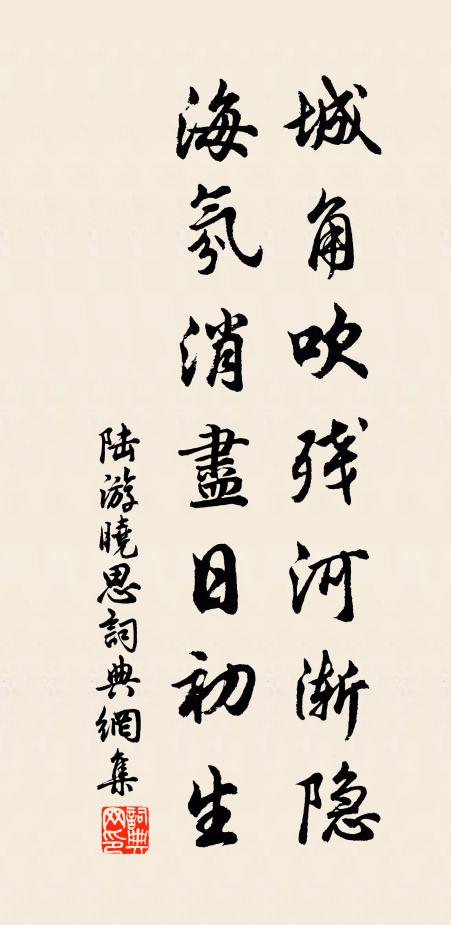 城角吹残河渐隐
海氛消盡日初生
陆游曉思詞典網集
詞典
网印